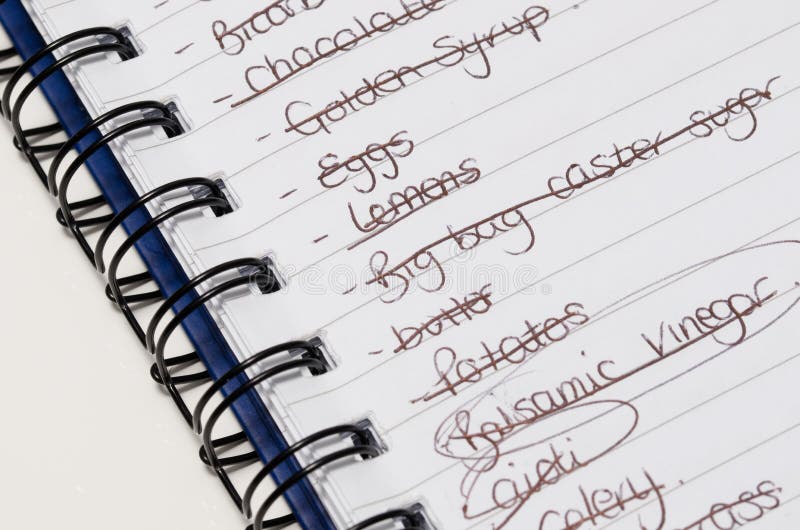 - Bicarb
- Chocolate
- Golden Syrup
- Eggs
- Lemons
- Big bag caster sugar
- butter
Potatoes
Balsamic Vinegar
celery
dreamstime